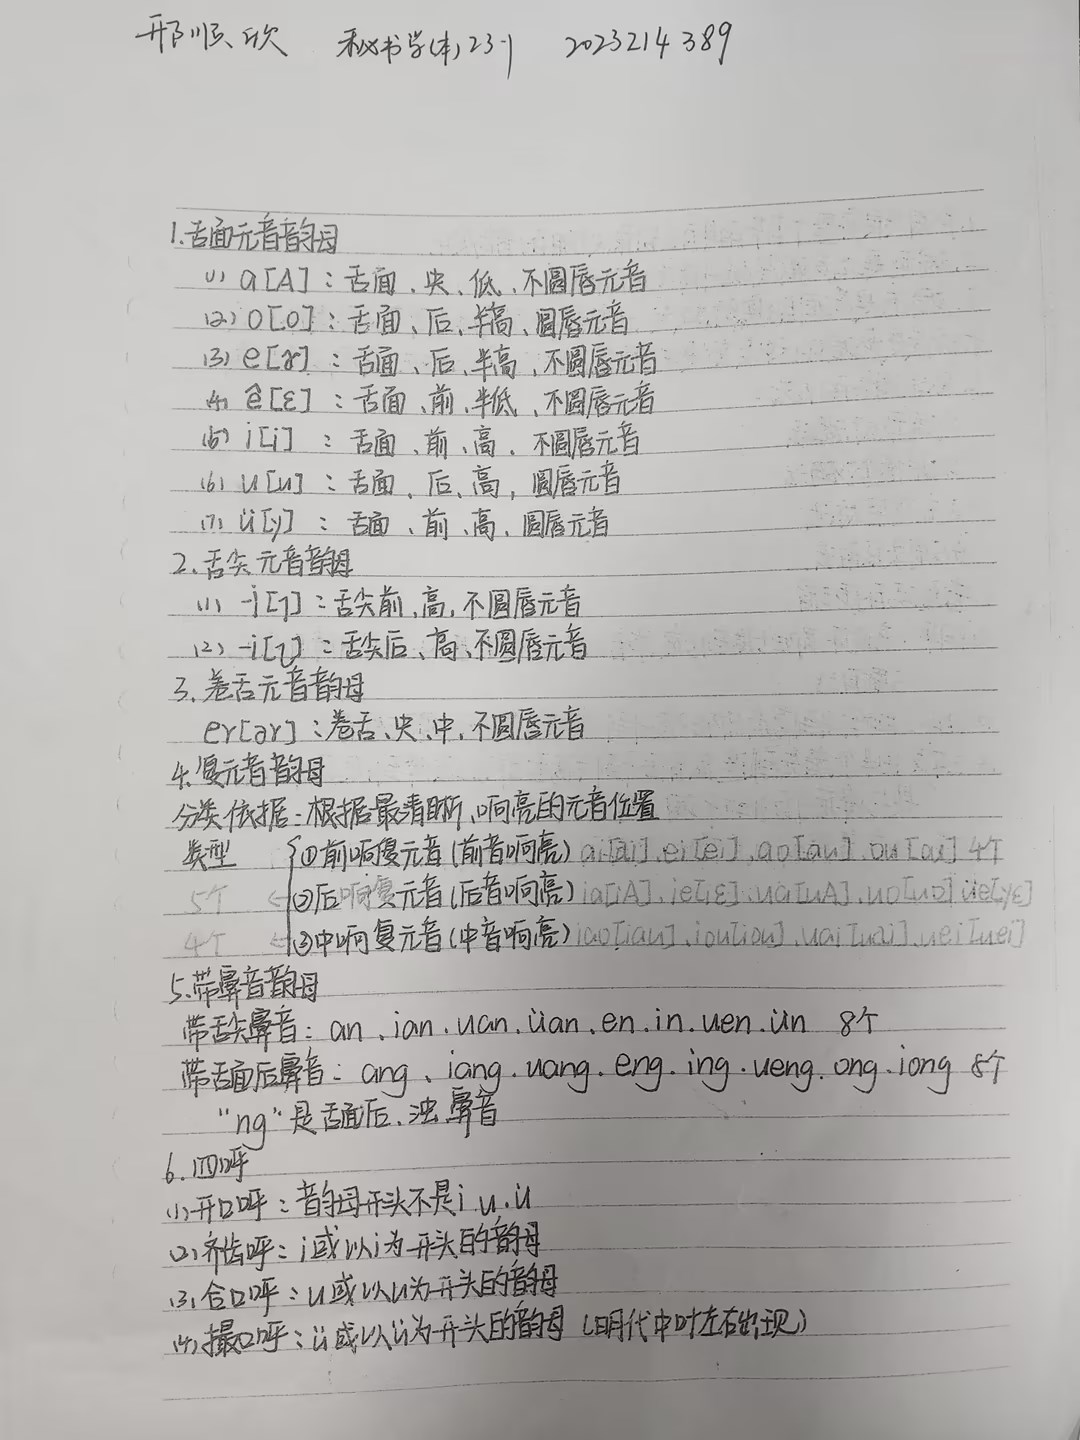 邢顺欣 秘书学(本)23-1 2023214389
1.舌面元音韵母
(1) a[A]：舌面、央、低、不圆唇元音
(2) o[o]：舌面、后、半高、圆唇元音
(3) e[ɤ]：舌面、后、半高、不圆唇元音
(4) ê[ε]：舌面、前、半低、不圆唇元音
(5) i[i]：舌面、前、高、不圆唇元音
(6) u[u]：舌面、后、高、圆唇元音
(7) ü[y]：舌面、前、高、圆唇元音
2.舌尖元音韵母
(1) -i[ɿ]：舌尖前、高、不圆唇元音
(2) -i[ʅ]：舌尖后、高、不圆唇元音
3.卷舌元音韵母
er[ər]：卷舌、央、中、不圆唇元音
4.复元音韵母
分类依据：根据最清晰、响亮的元音位置
类型 ①前响复元音(前音响亮) ai[ai]、ei[ei]、ao[au]、ou[ou] 4个
5个 ← ②后响复元音(后音响亮) ia[iA]、ie[iε]、ua[uA]、uo[uo] üe[yε]
4个 ← ③中响复元音(中音响亮) iao[iau]、iou[iou]、uai[uai]、uei[uei]
5.带鼻音韵母
带舌尖鼻音：an、ian、uan、üan、en、in、uen、ün 8个
带舌面后鼻音：ang、iang、uang、eng、ing、ueng、ong、iong 8个
"ng"是舌面后、浊鼻音
6.四呼
(1)开口呼：韵母开头不是i、u、ü
(2)齐齿呼：i或以i为开头的韵母
(3)合口呼：u或以u为开头的韵母
(4)撮口呼：ü或以ü为开头的韵母 (明代中叶左右出现)